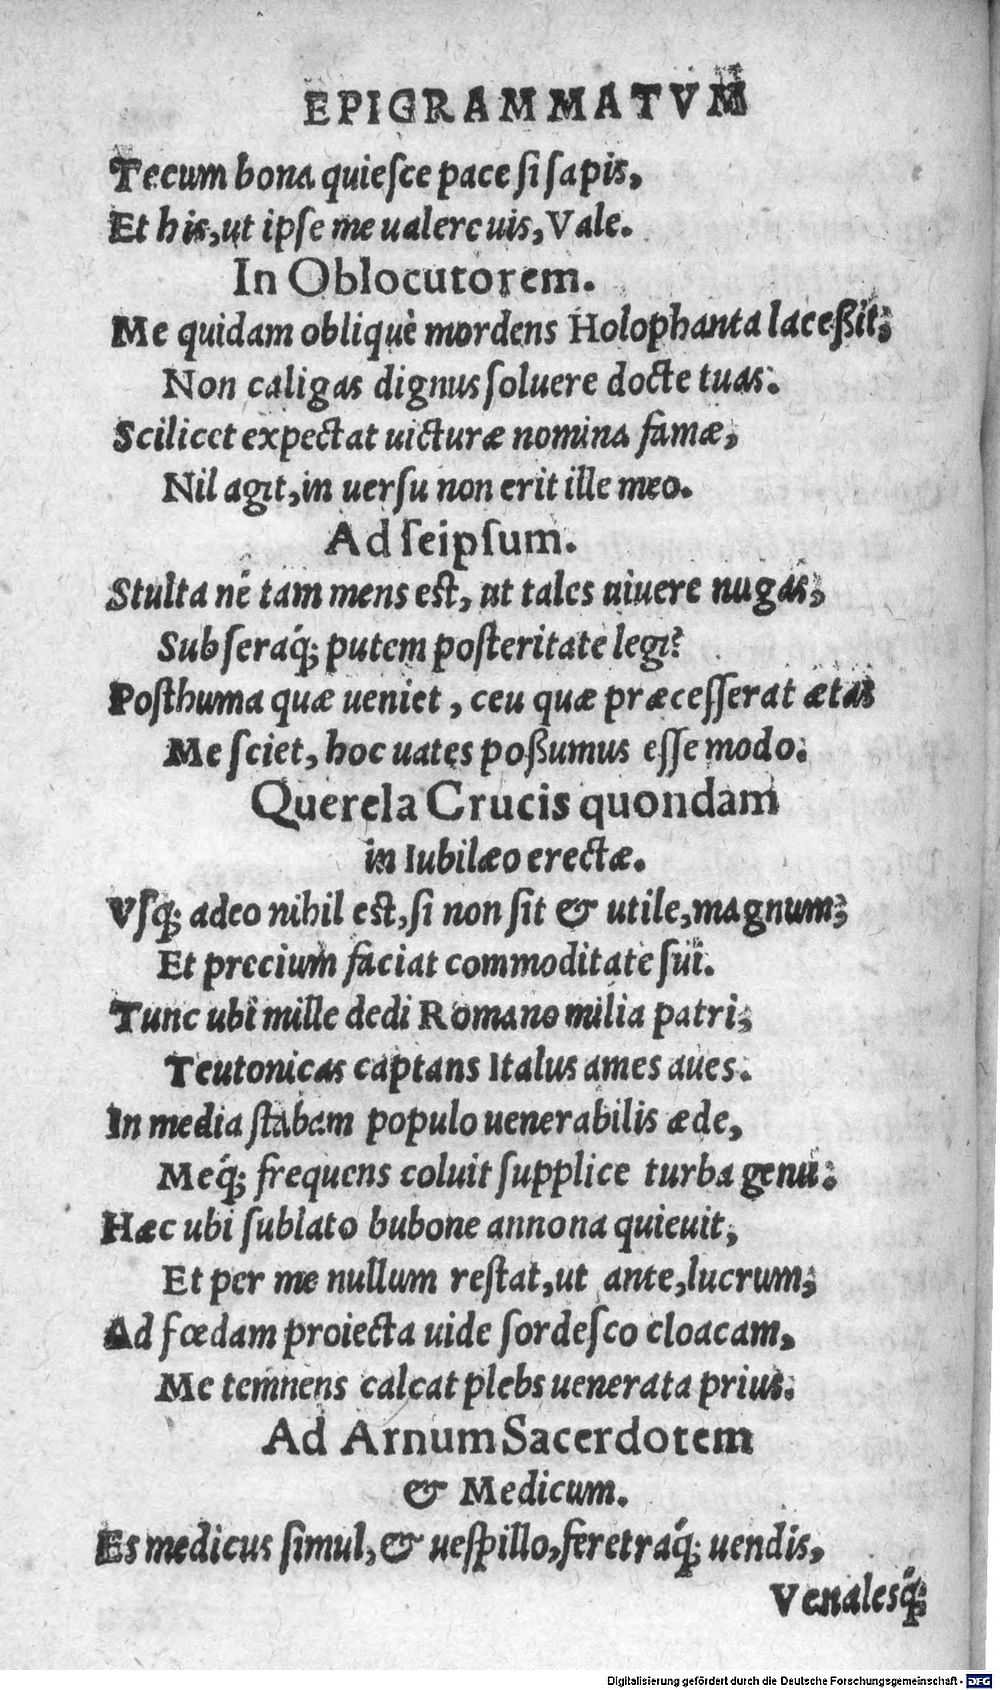 EPIGRAMMATVM
Tecum bona quieſce pace ſi ſapis,
Et his, ut ipſe me ualere uis, Vale.
In Oblocutorem.
Me quidam obliquè mordens Holophanta laceßit;
Non caligas dignus ſoluere docte tuas.
Scilicet expectat uicturæ nomina famæ,
Nil agit, in uerſu non erit ille meo.
Ad ſeipſum.
Stulta né tam mens est, ut tales uiuere nugas,
Sub ſeraq́; putem poſteritate legi?
Poſthuma quæ ueniet, ceu quæ præceſſerat ætas
Me ſciet, hoc uates poßumus eſſe modo.
Querela Crucis quondam
in Iubilæo erectæ.
Vſq; adeo nihil est, ſi non ſit & utile, magnum;
Et precium faciat commoditate ſui.
Tunc ubi mille dedi Romano milia patri;
Teutonicas captans Italus ames aues.
In media ſtabam populo uenerabilis æde,
Meq́; frequens coluit ſupplice turba genu.
Hæc ubi ſublato bubone annona quieuit,
Et per me nullum reſtat, ut ante, lucrum;
Ad fœdam proiecta uide ſordeſco cloacam,
Me temnens calcat plebs uenerata prius.
Ad Arnum Sacerdotem
& Medicum.
Es medicus ſimul, & ueſpillo, feretraq́; uendis,
Venalesq́;
Digitalisierung gefördert durch die Deutsche Forschungsgemeinschaft - DFG